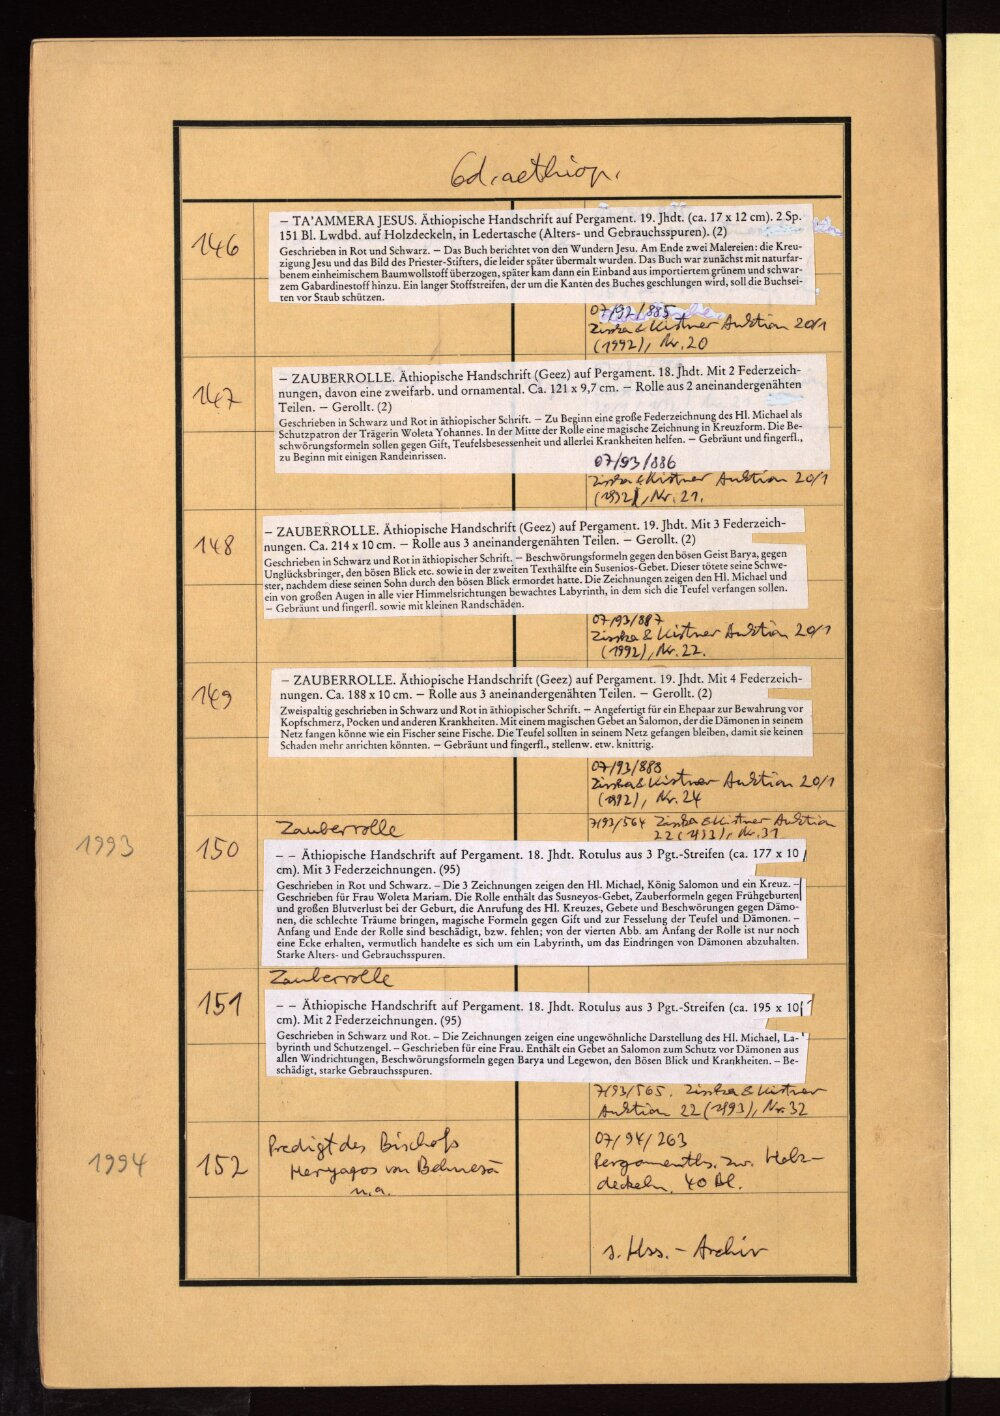 Cod. aethiop.
146
– TA’AMMERA JESUS. Äthiopische Handschrift auf Pergament. 19. Jhdt. (ca. 17 x 12 cm). 2 Sp.
151 Bl. Lwdbd. auf Holzdeckeln, in Ledertasche (Alters- und Gebrauchsspuren). (2)
Geschrieben in Rot und Schwarz. – Das Buch berichtet von den Wundern Jesu. Am Ende zwei Malereien: die Kreu-
zigung Jesu und das Bild des Priester-Stifters, die leider später übermalt wurden. Das Buch war zunächst mit naturfar-
benem einheimischem Baumwollstoff überzogen, später kam dann ein Einband aus importiertem grünem und schwar-
zem Gabardinestoff hinzu. Ein langer Stoffstreifen, der um die Kanten des Buches geschlungen wird, soll die Buchsei-
ten vor Staub schützen.
07/92/885
Zisska & Kistner Auktion 20/1
(1992), Nr. 20
147
– ZAUBERROLLE. Äthiopische Handschrift (Geez) auf Pergament. 18. Jhdt. Mit 2 Federzeich-
nungen, davon eine zweifarb. und ornamental. Ca. 121 x 9,7 cm. – Rolle aus 2 aneinandergenähten
Teilen. – Gerollt. (2)
Geschrieben in Schwarz und Rot in äthiopischer Schrift. – Zu Beginn eine große Federzeichnung des Hl. Michael als
Schutzpatron der Trägerin Woleta Yohannes. In der Mitte der Rolle eine magische Zeichnung in Kreuzform. Die Be-
schwörungsformeln sollen gegen Gift, Teufelsbesessenheit und allerlei Krankheiten helfen. – Gebräunt und fingerfl.,
zu Beginn mit einigen Randeinrissen.
07/93/886
Zisska & Kistner Auktion 20/1
(1992), Nr. 21.
148
– ZAUBERROLLE. Äthiopische Handschrift (Geez) auf Pergament. 19. Jhdt. Mit 3 Federzeich-
nungen. Ca. 214 x 10 cm. – Rolle aus 3 aneinandergenähten Teilen. – Gerollt. (2)
Geschrieben in Schwarz und Rot in äthiopischer Schrift. – Beschwörungsformeln gegen den bösen Geist Barya, gegen
Unglücksbringer, den bösen Blick etc. sowie in der zweiten Texthälfte ein Susenios-Gebet. Dieser tötete seine Schwe-
ster, nachdem diese seinen Sohn durch den bösen Blick ermordet hatte. Die Zeichnungen zeigen den Hl. Michael und
ein von großen Augen in alle vier Himmelsrichtungen bewachtes Labyrinth, in dem sich die Teufel verfangen sollen.
– Gebräunt und fingerfl. sowie mit kleinen Randschäden.
07/93/887
Zisska & Kistner Auktion 20/1
(1992), Nr. 22.
149
– ZAUBERROLLE. Äthiopische Handschrift (Geez) auf Pergament. 19. Jhdt. Mit 4 Federzeich-
nungen. Ca. 188 x 10 cm. – Rolle aus 3 aneinandergenähten Teilen. – Gerollt. (2)
Zweispaltig geschrieben in Schwarz und Rot in äthiopischer Schrift. – Angefertigt für ein Ehepaar zur Bewahrung vor
Kopfschmerz, Pocken und anderen Krankheiten. Mit einem magischen Gebet an Salomon, der die Dämonen in seinem
Netz fangen könne wie ein Fischer seine Fische. Die Teufel sollten in seinem Netz gefangen bleiben, damit sie keinen
Schaden mehr anrichten könnten. – Gebräunt und fingerfl., stellenw. etw. knittrig.
07/93/888
Zisska & Kistner Auktion 20/1
(1992), Nr. 24
1993
150
Zauberrolle
7/93/564 Zisska & Kistner Auktion
22 (1993), Nr. 31
– – Äthiopische Handschrift auf Pergament. 18. Jhdt. Rotulus aus 3 Pgt.-Streifen (ca. 177 x 10
cm). Mit 3 Federzeichnungen. (95)
Geschrieben in Rot und Schwarz. – Die 3 Zeichnungen zeigen den Hl. Michael, König Salomon und ein Kreuz. –
Geschrieben für Frau Woleta Mariam. Die Rolle enthält das Susneyos-Gebet, Zauberformeln gegen Frühgeburten
und großen Blutverlust bei der Geburt, die Anrufung des Hl. Kreuzes, Gebete und Beschwörungen gegen Dämo-
nen, die schlechte Träume bringen, magische Formeln gegen Gift und zur Fesselung der Teufel und Dämonen. –
Anfang und Ende der Rolle sind beschädigt, bzw. fehlen; von der vierten Abb. am Anfang der Rolle ist nur noch
eine Ecke erhalten, vermutlich handelte es sich um ein Labyrinth, um das Eindringen von Dämonen abzuhalten.
Starke Alters- und Gebrauchsspuren.
151
Zauberrolle
– – Äthiopische Handschrift auf Pergament. 18. Jhdt. Rotulus aus 3 Pgt.-Streifen (ca. 195 x 10
cm). Mit 2 Federzeichnungen. (95)
Geschrieben in Schwarz und Rot. – Die Zeichnungen zeigen eine ungewöhnliche Darstellung des Hl. Michael, La-
byrinth und Schutzengel. – Geschrieben für eine Frau. Enthält ein Gebet an Salomon zum Schutz vor Dämonen aus
allen Windrichtungen, Beschwörungsformeln gegen Barya und Legewon, den Bösen Blick und Krankheiten. – Be-
schädigt, starke Gebrauchsspuren.
7/93/565. Zisska & Kistner
Auktion 22 (1993), Nr. 32
1994
152
Predigt des Bischofs
Heryaqos von Behnesā
u. a.
07/94/263
Pergamenths. zw. Holz-
deckeln. 40 Bl.
s. Hss. – Archiv